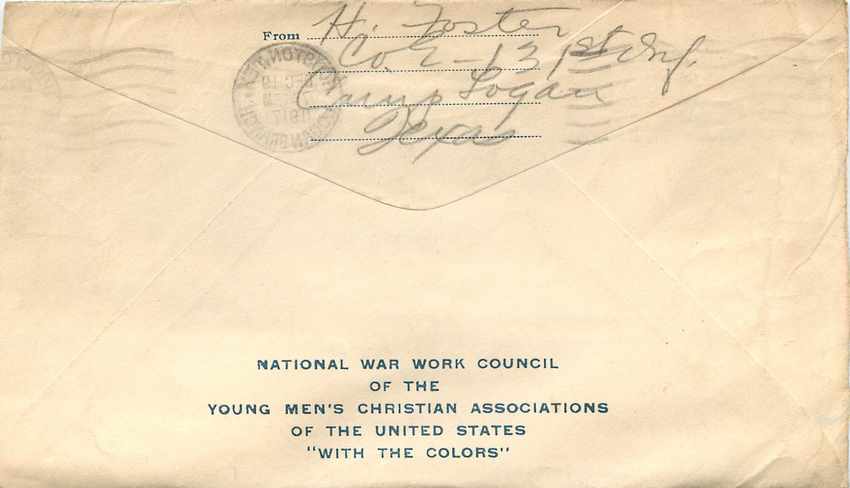 From Hi Foster
Co. L - 131st Inf.
Camp Logan
Texas
NATIONAL WAR WORK COUNCIL
OF THE
YOUNG MEN'S CHRISTIAN ASSOCIATIONS
OF THE UNITED STATES
"WITH THE COLORS"